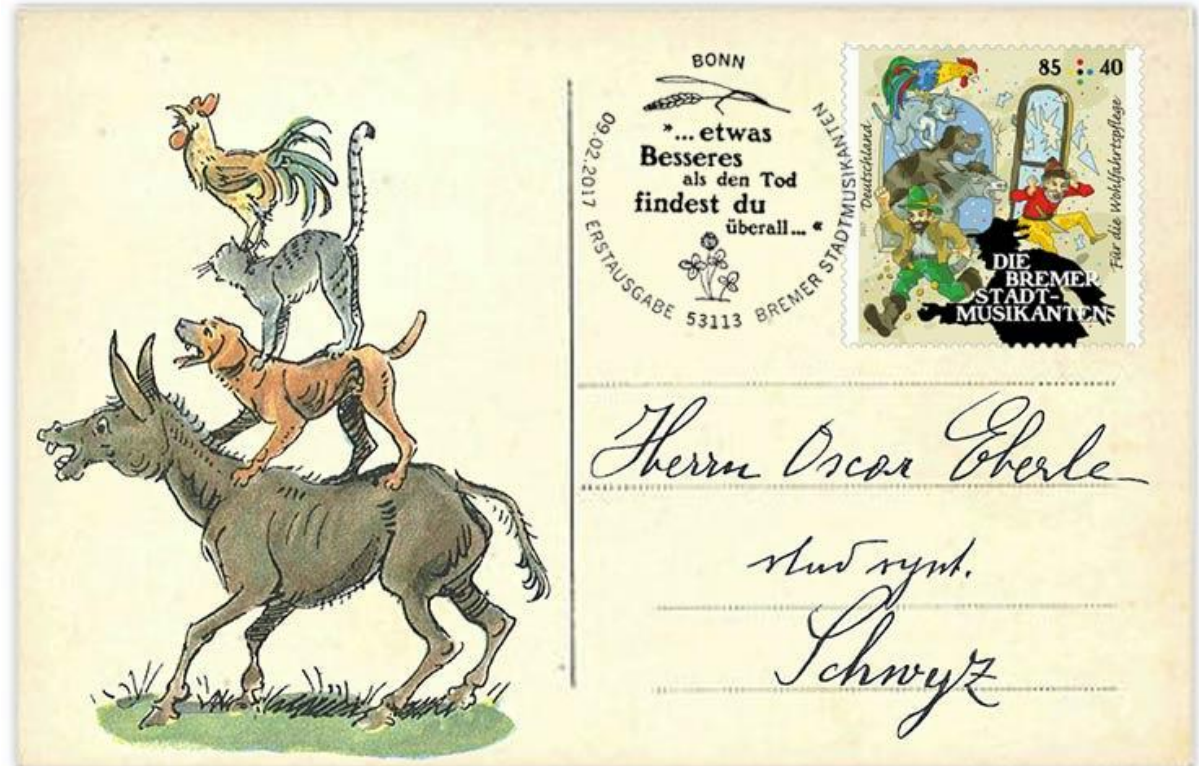 BONN
»... etwas
Besseres
als den Tod
findest du
überall... «
09.02.2017 ERSTAUSGABE 53113 BREMER STADTMUSIKANTEN
85 40
Deutschland
Für die Wohlfahrtspflege
DIE
BREMER
STADT-
MUSIKANTEN
Herrn Oscar Eberle
stud
Schwyz